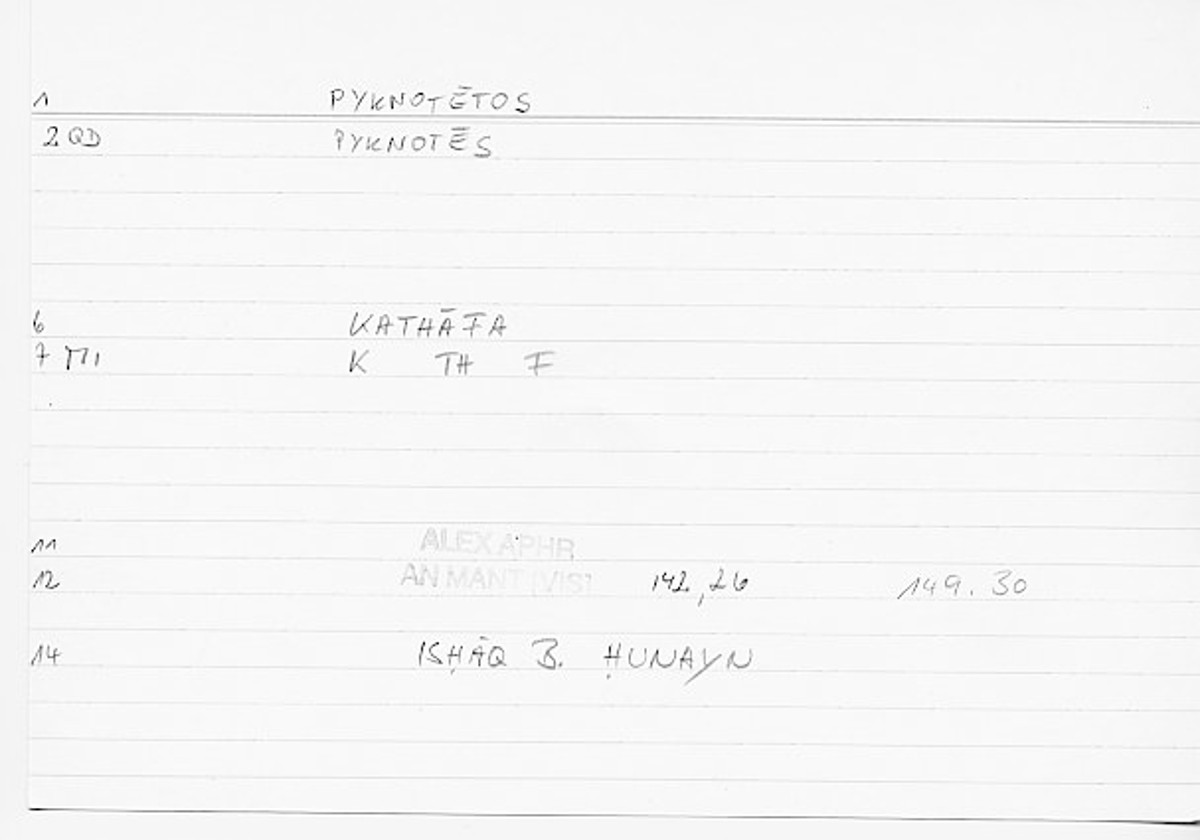 1 PYKNOTĒTOS
2 QD PYKNOTĒS
6 KATHĀFA
7 M1 K TH F
11 ALEX APHR
12 AN MANT [VIS] 142,26 149.30
14 ISḤĀQ B. ḤUNAYN